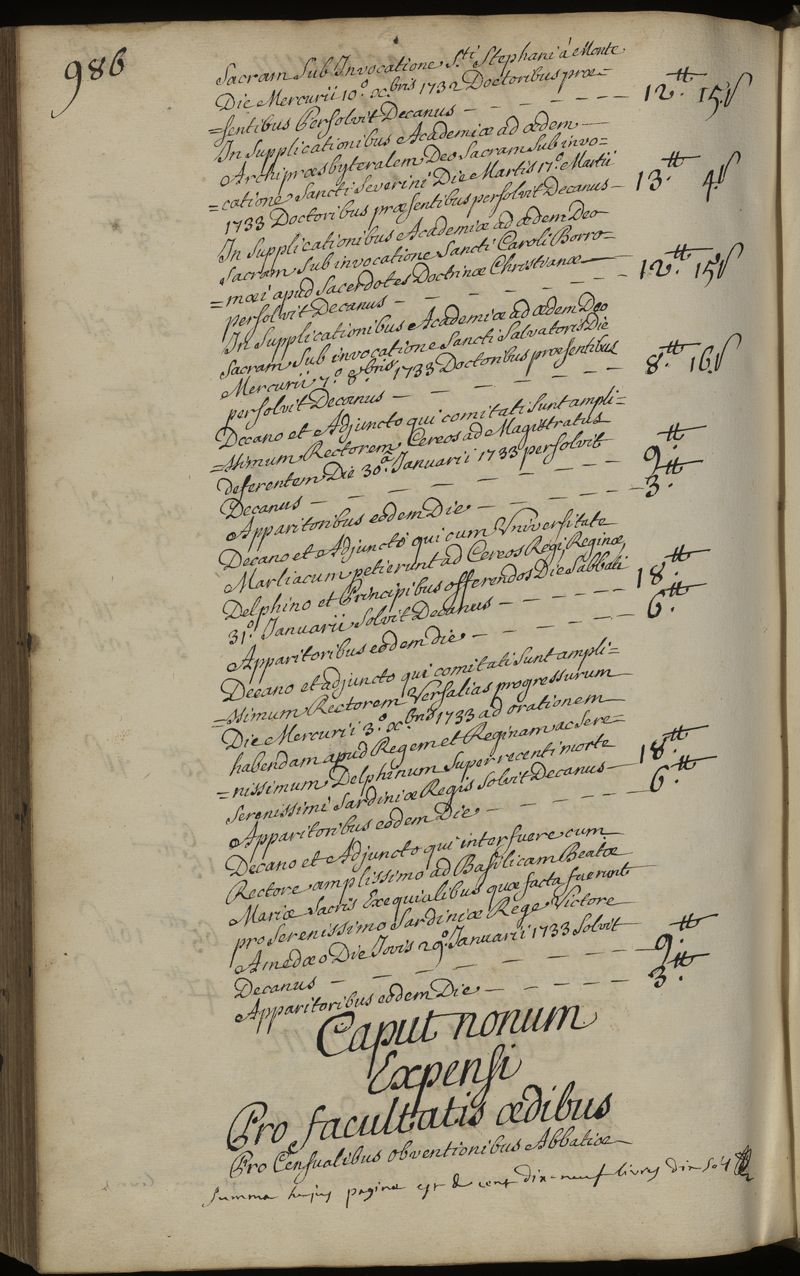 986
Sacram Sub Invocatione S.ti Stephani à Monte
Die Mercurii 10.o xbris 1732 Doctoribus præ=
=sentibus Persolvit Decanus — 12.tt 15.s
In Supplicationibus Academiæ ad ædem
Archipræsbyteralem Deo Sacram Sub invo=
=catione Sancti Severini Die Martis 17.o Martii
1733 Doctoribus præsentibus persolvit Decanus — 13.tt 4.s
In Supplicationibus Academiæ ad ædem Deo
Sacram Sub invocatione Sancti Caroli Borro=
=mæi apud Sacerdotes Doctrinæ Christianæ
persolvit Decanus — 12.tt 15.s
In Supplicationibus Academiæ ad ædem Deo
Sacram Sub invocatione Sancti Salvatoris Die
Mercurii 7.o 8bris 1733 Doctoribus præsentibus
persolvit Decanus — 8.tt 16.s
Decano et Adjuncto qui comitati sunt ampli=
=ssimum Rectorem Cereos ad Magistratus
deferentem Die 30.a Januarii 1733 persolvit
Decanus — 9.tt
Apparitoribus eodem Die — 3.tt
Decano et Adjuncto qui cum Universitate
Marliacum petierunt ad Cereos Regi, Reginæ,
Delphino et Principibus offerendos Die Sabbati
31.o Januarii Solvit Decanus — 18.tt
Apparitoribus eodem die — 6.tt
Decano et adjuncto qui comitati Sunt ampli=
=ssimum Rectorem Versalias progressurum
Die Mercurii 3.o xbris 1733 ad orationem
habendam apud Regem et Reginam ac Sere=
=nissimum Delphinum Super recenti morte
Serenissimi Sardiniæ Regis Solvit Decanus — 18.tt
Apparitoribus eodem Die — 6.tt
Decano et Adjuncto qui interfuere cum
Rectore amplissimo ad Basilicam Beatæ
Mariæ Sacris Exequialibus quæ facta fuerunt
pro Serenissimo Sardiniæ Rege Victore
Amedæo Die Jovis 29.o Januarii 1733 Solvit
Decanus — 9.tt
Apparitoribus eodem Die — 3.tt
Caput nonum
Expensi
Pro facultatis ædibus
Pro Censualibus obventionibus Abbatiæ
Summa hujus paginæ est de cent dix-neuf livres dix Sols